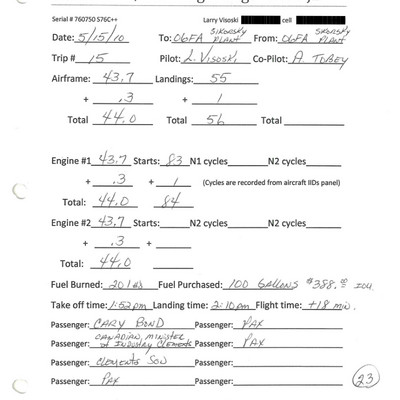 Serial # 760750 S76C++ Larry Visoski cell
Date: 5/15/10 To: 06FA SIKORSKY PLANT From: 06FA SIKORSKY PLANT
Trip # 15 Pilot: L. VISOSKI Co-Pilot: A. TOBEY
Airframe: 43.7 Landings: 55
+ .3 + 1
Total 44.0 Total 56 Total
Engine #1 43.7 Starts: 83 N1 cycles N2 cycles
+ .3 + 1 (Cycles are recorded from aircraft IIDs panel)
Total: 44.0 84
Engine #2 43.7 Starts: N2 cycles N2 cycles
+ .3 +
Total: 44.0
Fuel Burned: 201 Fuel Purchased: 100 GALLONS $388.00
Take off time: 1:52 pm Landing time: 2:10 pm Flight time: +18 min.
Passenger: CARY BOND Passenger: PAX
Passenger: CANADIAN, MINISTER of INDUSTRY CLEMENTS Passenger: PAX
Passenger: CLEMENTS SON Passenger:
Passenger: PAX Passenger: 23